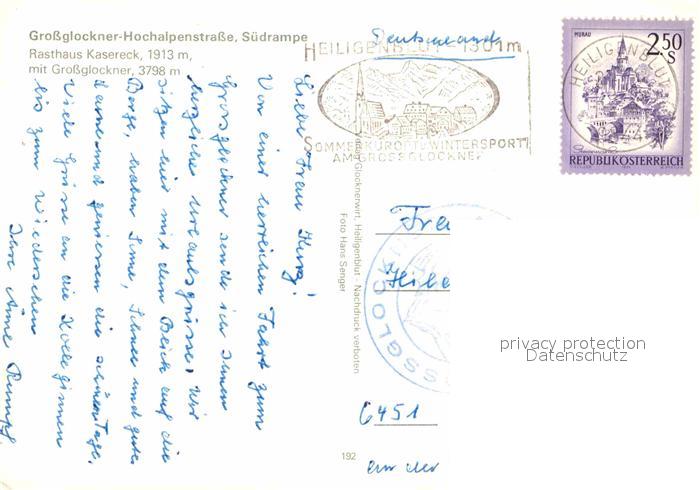 Großglockner-Hochalpenstraße, Südrampe
Rasthaus Kasereck, 1913 m,
mit Großglockner, 3798 m
Deutschland
HEILIGENBLUT - 1301m
SOMMERKURORT u WINTERSPORT
AM GROSSGLOCKNER
MURAU
2.50
S
HEILIGENBLUT
REPUBLIK ÖSTERREICH
Liebe Frau Kunz!
Von einer herrlichen Fahrt zum
Grossglockner sende ich Ihnen
herzliche Urlaubsgrüsse. Wir
sitzen hier mit dem Blick auf die
Berge, haben Sonne, Schnee und gute
Laune und geniessen die schönen Tage.
Viele Grüsse an die Kolleginnen
bis zum Wiedersehen
Ihre Anne Rumpf
Glocknerwirt, Heiligenblut - Nachdruck verboten
Foto Hans Senger
Fra
Hilbe
6451
192
privacy protection
Datenschutz